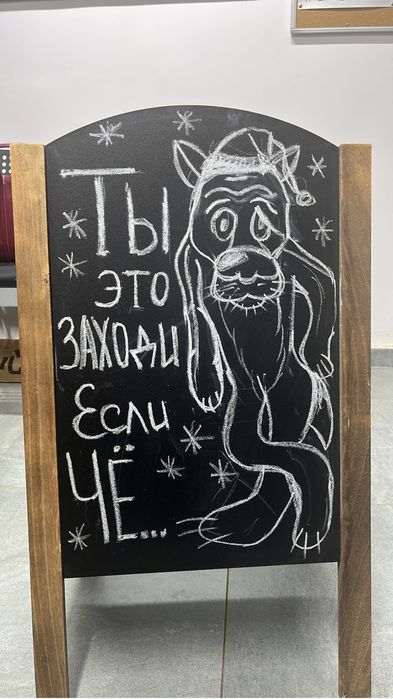 Ты
это
заходи
Если
ЧЁ...